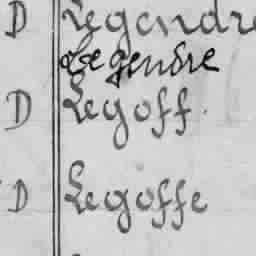 D Legendre
Legendre
D Legoff
D Legoffe